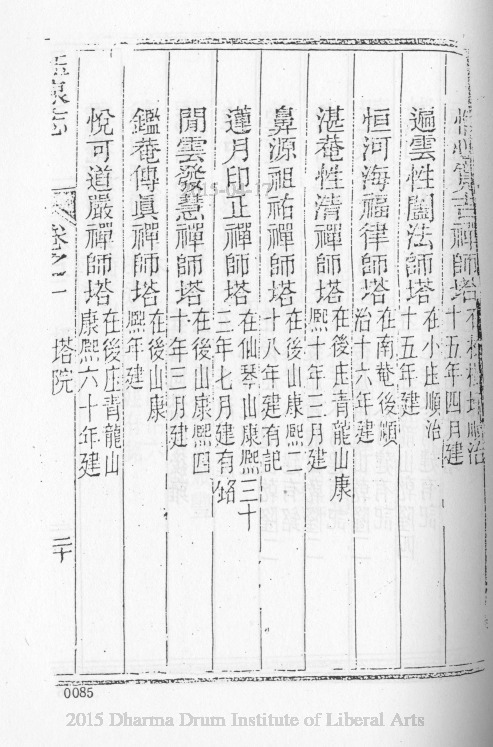 禪師塔 十五年四月建
遍雲性闇法師塔 在小庄順治十五年建
恒河海福律師塔 在南菴後順治十六年建
湛菴性清禪師塔 在後庄青龍山康熙十年三月建
鼻源祖祐禪師塔 在後山康熙二十八年建有記
蓮月印正禪師塔 在仙琴山康熙三十三年七月建有銘
閒雲發慧禪師塔 在後山康熙四十年三月建
鑑菴傳眞禪師塔 在後山康熙年建
悅可道嚴禪師塔 在後庄青龍山康熙六十年建
卷之一 塔院 二十
0085
2015 Dharma Drum Institute of Liberal Arts